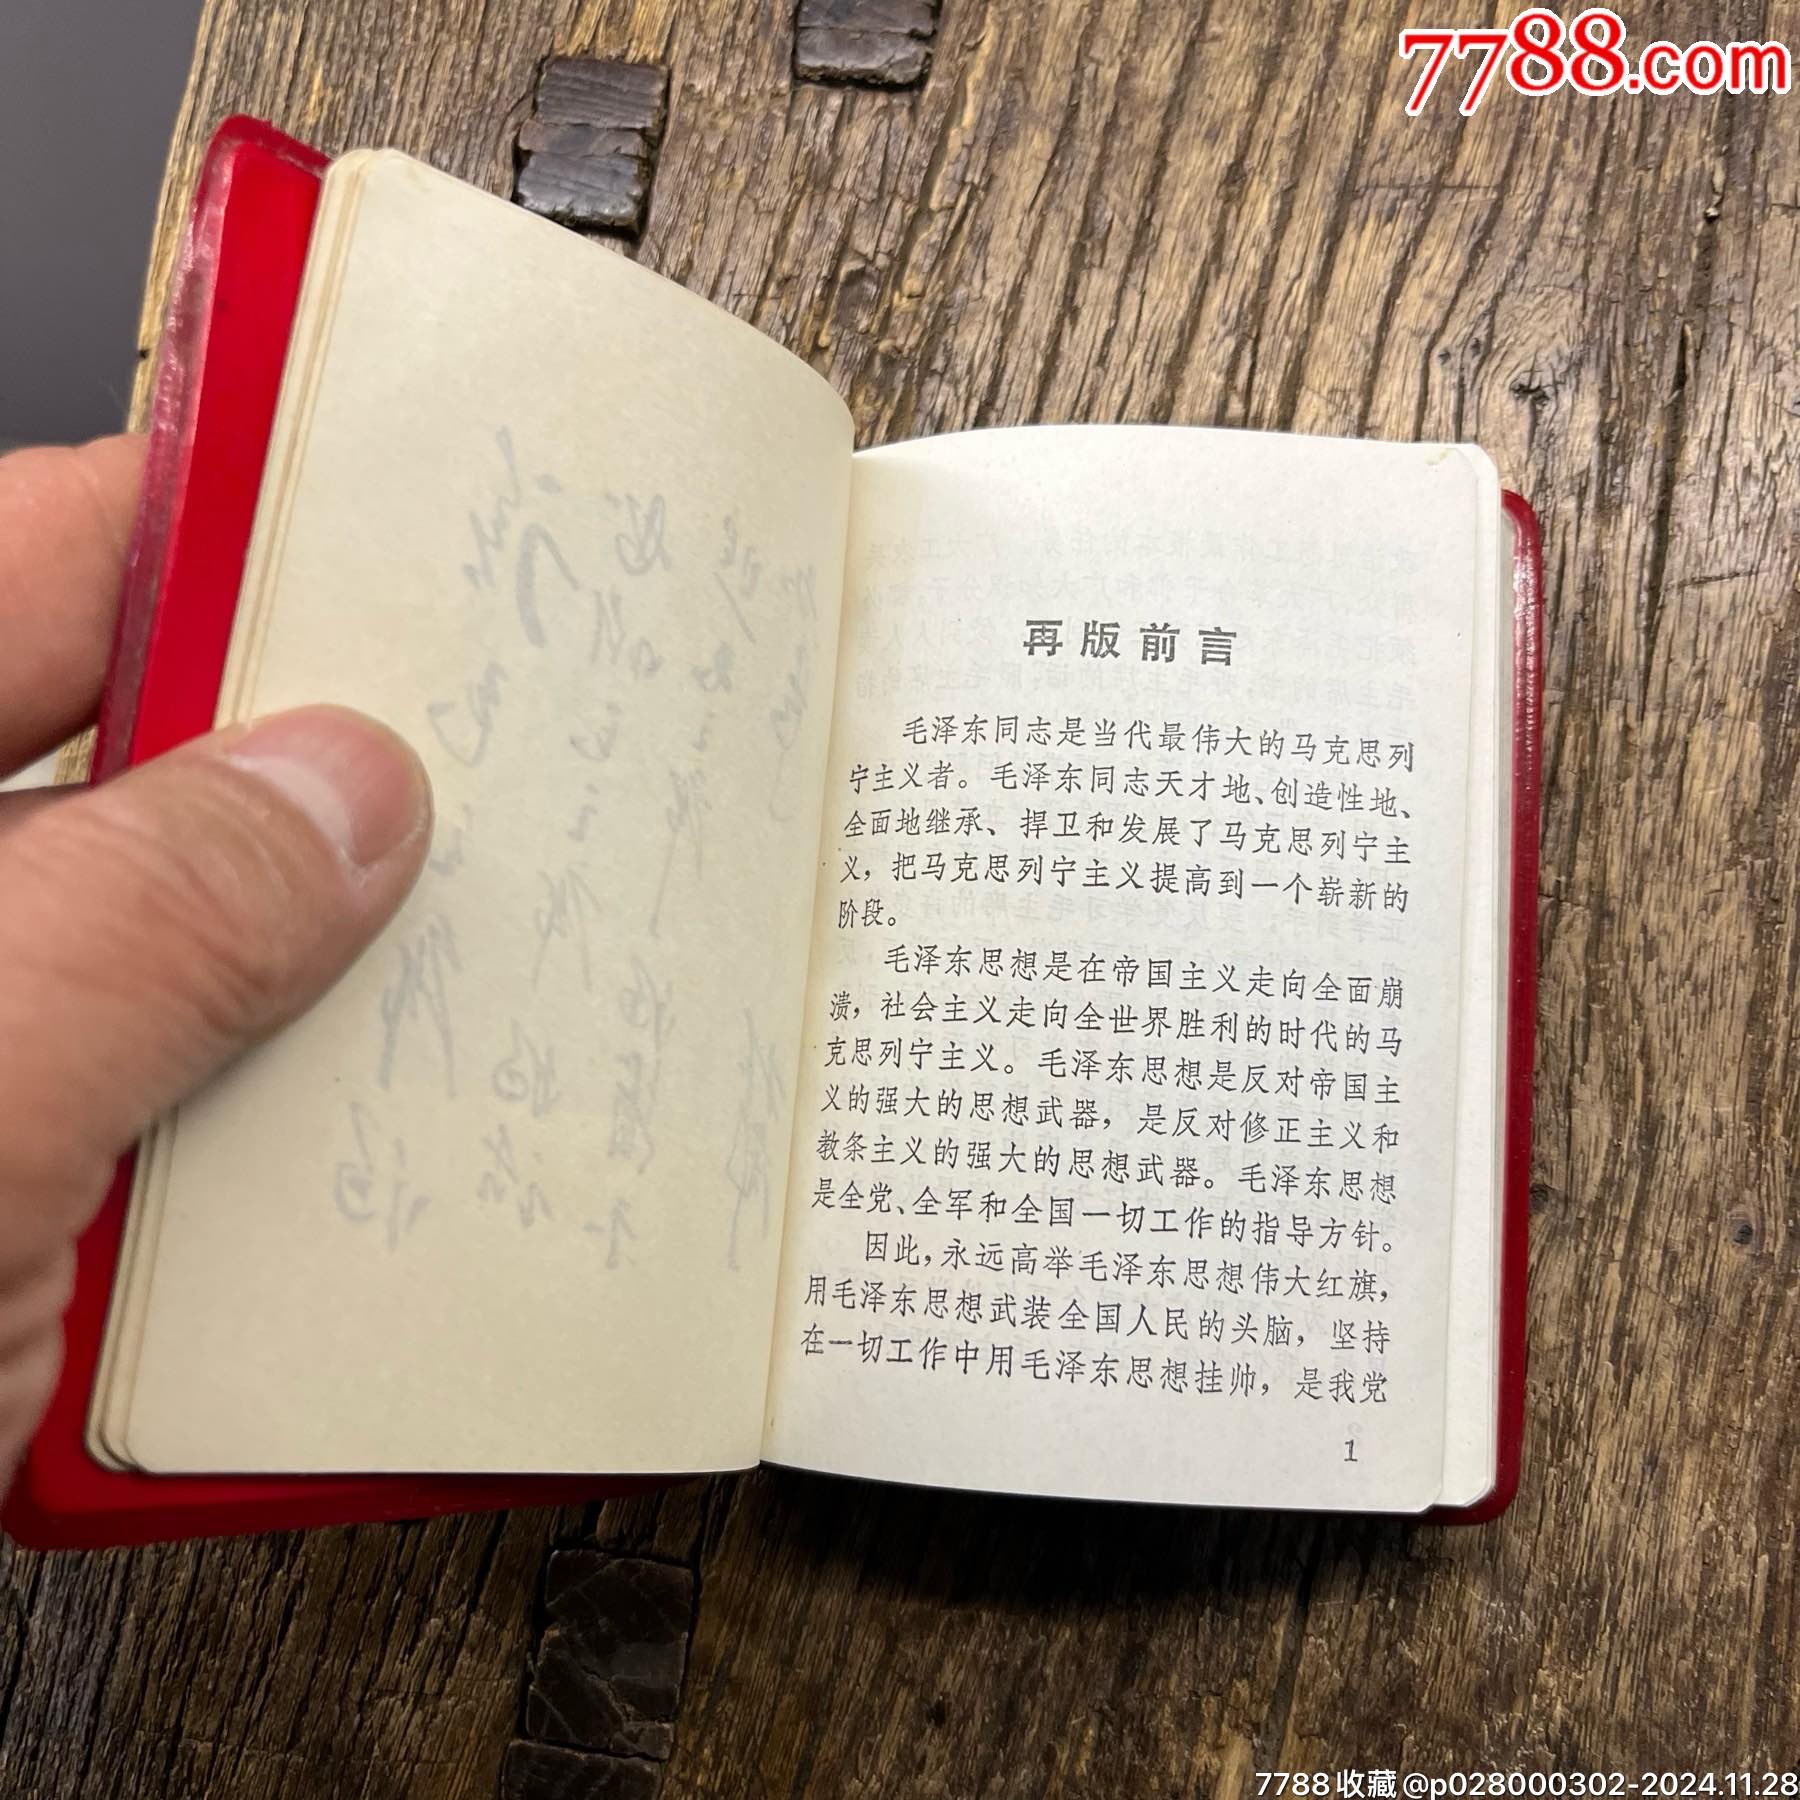 7788.com
再版前言
毛泽东同志是当代最伟大的马克思列
宁主义者。毛泽东同志天才地、创造性地、
全面地继承、捍卫和发展了马克思列宁主
义，把马克思列宁主义提高到一个崭新的
阶段。
毛泽东思想是在帝国主义走向全面崩
溃，社会主义走向全世界胜利的时代的马
克思列宁主义。毛泽东思想是反对帝国主
义的强大的思想武器，是反对修正主义和
教条主义的强大的思想武器。毛泽东思想
是全党、全军和全国一切工作的指导方针。
因此，永远高举毛泽东思想伟大红旗，
用毛泽东思想武装全国人民的头脑，坚持
在一切工作中用毛泽东思想挂帅，是我党
1
7788收藏@p028000302-2024.11.28